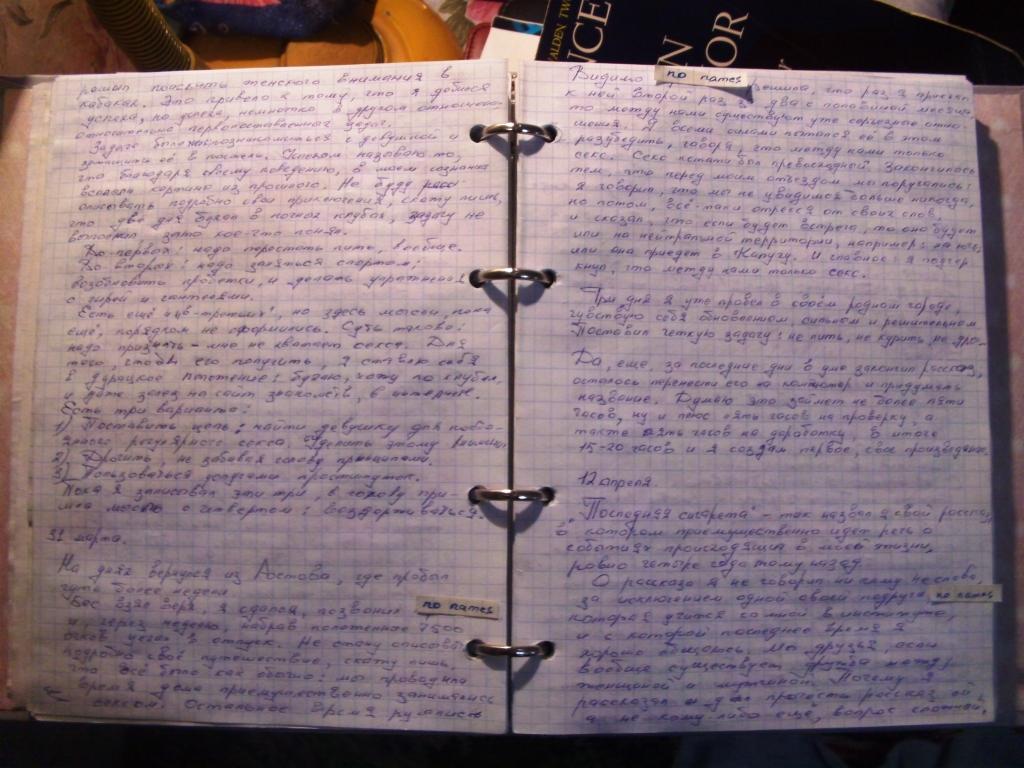 WALDEN TW
NCE
N
OR
решил поискать женского внимания в
кабаках. Это привело к тому, что я добился
успеха, но успеха, немного в другом
относительно первопоставленных задач.
Задача была: познакомиться с девушкой и
её в постели. Успехом называю то,
что благодаря своему поведению, в моём сознании
всплыла картина из прошлого. Не буду
описывать подробно свои приключения, скажу лишь,
что два дня бухал в ночных клубах, задачу не
выполнил зато кое-что понял.
Во первых: надо перестать пить, вообще.
Во вторых: надо заняться спортом:
возобновить пробежки, и делать упражнения
с гирей и гантелями.
Есть ещё и "в-третьих", но здесь мысли, пока
ещё, порядком не оформились. Суть такова:
надо признать - мне не хватает секса. Для
того, чтобы его получить, я ставлю себя
в дурацкое положение: бухаю, хожу по клубам,
и даже залез на сайт знакомств, в интернете.
Есть три варианта:
1) Поставить цель: найти девушку для
регулярного секса, уделить этому
2) Дрочить, не забивая голову принципами.
3) Пользоваться услугами проституток.
Пока я записывал эти три, в голову при-
шла мысль о четвёртом: воздерживаться.
31 марта.
На днях вернулся из Ростова, где пробыл
чуть более недели
Бес взял верх, я сдался, позвонил no names
и, через неделю, набрав положенное 7500
очков уехал в отпуск. Не стану описывать
подробно своё путешествие, скажу лишь,
что всё было как обычно: мы проводили
время дома преимущественно занимаясь
сексом. Остальное время ругались
Видимо no names решила, что раз я приехал
к ней второй раз за два с половиной месяца,
то между нами существуют уже серьезные отно-
шения. Я всеми силами пытался её в этом
разубедить, говоря, что между нами только
секс. Секс кстати был превосходный. Закончилось
тем, что перед моим отъездом мы поругались:
я говорил, что мы не увидимся больше никогда,
но потом, всё-таки отрёкся от своих слов,
и сказал, что если будет встреча, то она будет
или на нейтральной территории, например: на юге,
или она приедет в Калугу. И главное: я подчер-
кнул, что между нами только секс.
Три дня я уже провел в своём родном городе,
чувствую себя обновленным, сильным и решительным
Поставил чёткую задачу: не пить, не курить, не дро-
Да, еще, за последние дни в уме закончил рассказ,
осталось перенести его на компьютер и придумать
название. Думаю это займет не более пяти
часов, ну и плюс пять часов на проверку, а
также пять часов на доработку, в итоге
15-20 часов и я создам первое, своё произведение.
12 апреля.
"Последняя сигарета" - так назвал я свой рассказ,
в котором преимущественно идет речь о
событиях происходящих в моей жизни,
ровно четыре года тому назад.
О рассказе я не говорил ни кому ни слова,
за исключением одной своей подруги no names
которая учится со мной в институте,
и с которой последнее время я
хорошо общаюсь. Мы друзья, если
вообще существует дружба между
женщиной и мужчиной. Почему я
рассказал и дал прочесть рассказ ей,
а не кому-либо ещё, вопрос сложный,